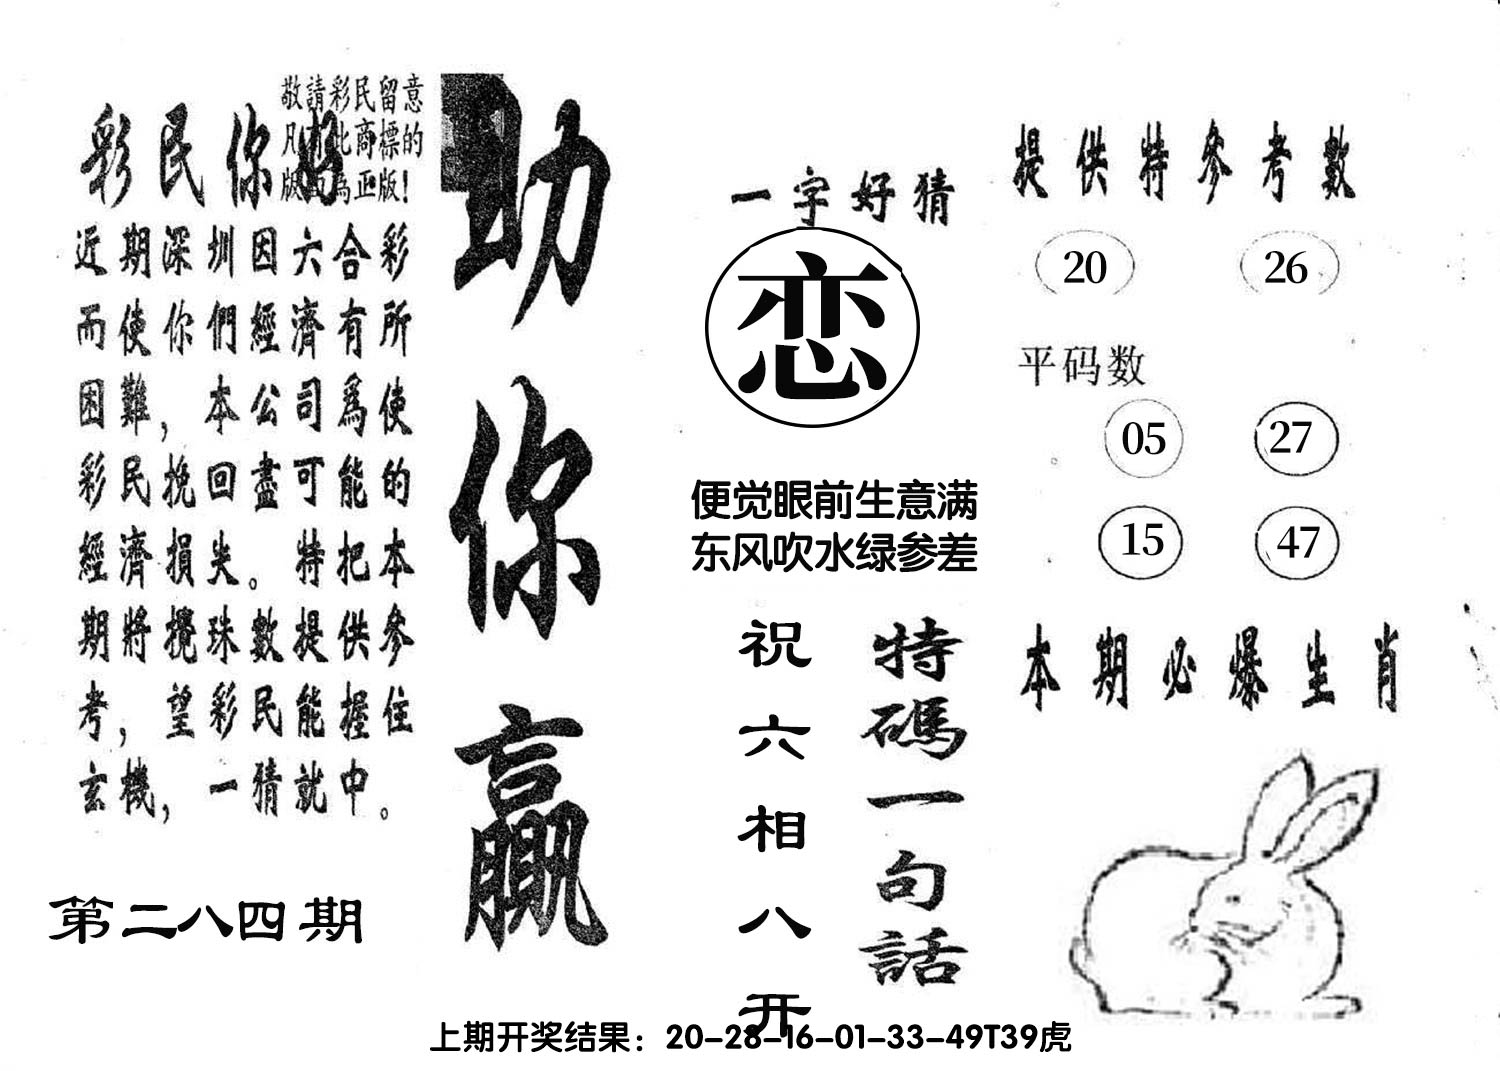 敬請彩民留意
凡有此商標的
版面為正版！
彩民你好
近期深圳因六合彩
而使你們經濟有所
困難，本公司爲使
彩民挽回盡可能的
經濟損失。特把本
期將攪珠數提供參
考，望彩民能握住
玄機，一猜就中。
第二八四期
助你贏
一字好猜
恋
便觉眼前生意满
东风吹水绿参差
特碼一句話
祝六相八开
提供特參考數
20 26
平码数
05 27
15 47
本期必爆生肖
上期开奖结果：20-28-16-01-33-49T39虎